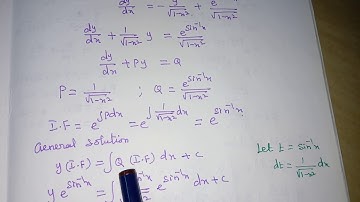 dy/dx = -y/√1-x² + e^sin⁻¹x/√1-x²
dy/dx + 1/√1-x² y = e^sin⁻¹x/√1-x²
dy/dx + Py = Q
P = 1/√1-x² ; Q = e^sin⁻¹x/√1-x²
I.F = e^∫Pdx = e^∫1/√1-x² dx = e^sin⁻¹x
General solution
y(I.F) = ∫Q (I.F) dx + c
y e^sin⁻¹x = ∫ e^sin⁻¹x dx + c
Let t = sin⁻¹x
dt = 1/√1-x² dx